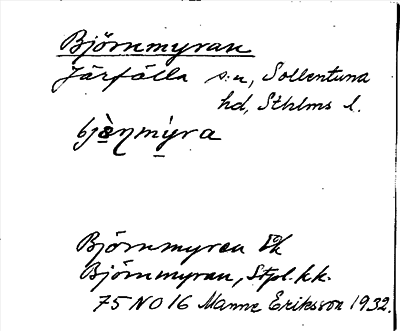 Björnmyran
Järfälla s:n, Sollentuna
hd, Sthlms l.
bjö̀ṇmýra
Björnmyren
Björnmyran, Stpl. kk.
75 NO 16 Manne Eriksson 1932.